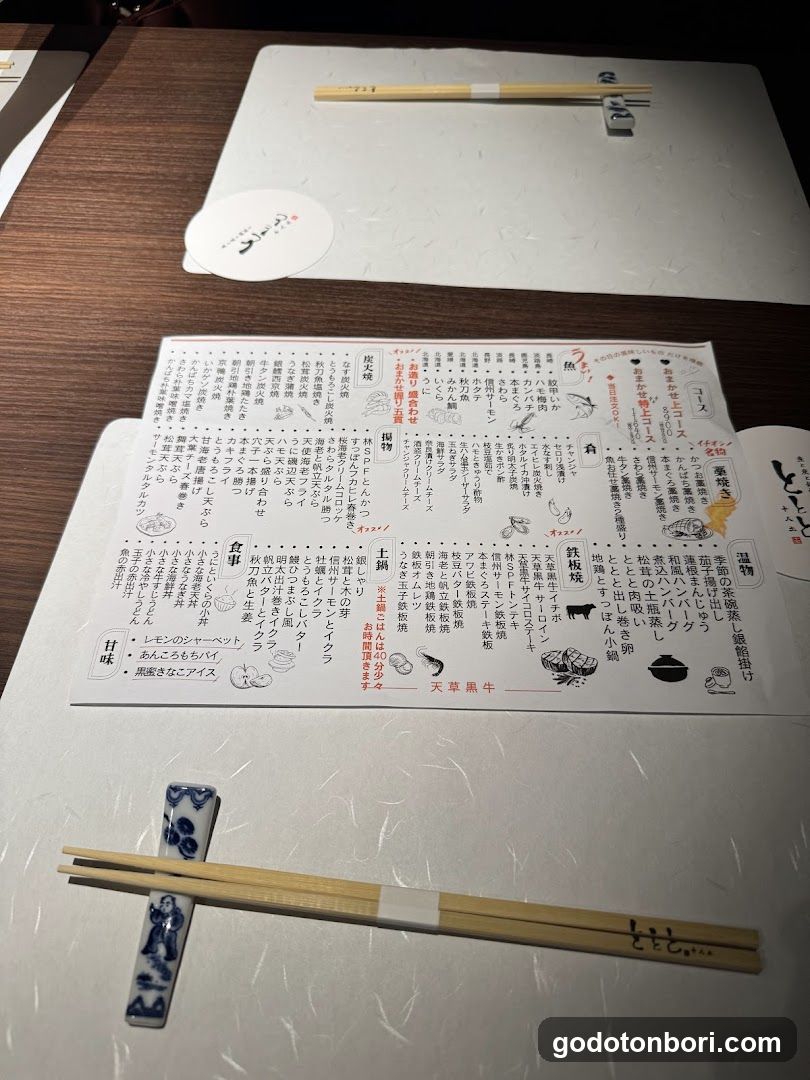 コース
その日の美味しいもの だけを堪能
おまかせ上コース
8900
おまかせ特上コース
当日注文OK!
うまい!
魚
長崎 紋甲いか
淡路島 ハモ梅肉
鹿児島 カンパチ
長崎 本まぐろ
淡路 さわら
長野 信州サーモン
北海道 ホタテ
北海道 秋刀魚
愛媛 みかん鯛
北海道 いくら
北海道 うに
オススメ
お造り 盛合わせ
おまかせ握り五貫
炭火焼
なす炭火焼
とうもろこし炭火焼
秋刀魚塩焼き
松茸炭火焼
うなぎ蒲焼
銀鱈西京焼
牛タン炭火焼
朝引き地鶏たたき
朝引地鶏朴葉焼き
京鴨炭火焼
いかゲソ炭焼き
かんぱちカマ塩焼き
さわら朴葉味噌焼き
かんぱち朴葉味噌焼き
イチオシ
名物
藁焼き
かつお藁焼き
かんぱち藁焼き
本まぐろ藁焼き
信州サーモン藁焼き
さわら藁焼き
牛タン藁焼き
魚お任せ藁焼き5種盛り
肴
チャンジャ
セロリ浅漬け
水なす刺し
エイヒレ炭火焼き
ホタルイカ沖漬け
炙り明太子炭焼
生かきポン酢
枝豆塩茹で
ハモときゅうり酢物
生ハム温玉シーザーサラダ
玉ねぎサラダ
海鮮サラダ
奈良漬クリームチーズ
酒盗クリームチーズ
チャンジャクリームチーズ
揚物
林SPFとんかつ
すっぽんフカヒレ春巻き
桜海老クリームコロッケ
さわらタルタル勝つ
海老と帆立天ぷら
天使海老フライ
うに磯辺天ぷら
ハモ天ぷら
天ぷら盛り合わせ
穴子一本揚げ
本まぐろ勝つ
カキフライ
とうもろこし天ぷら
甘海老唐揚げ
大葉チーズ春巻き
舞茸天ぷら
松茸天ぷら
サーモンタルタルカツ
温物
季節の茶碗蒸し銀餡掛け
茄子揚げ出し
蓮根まんじゅう
和風ハンバーグ
煮込ハンバーグ
松茸の土瓶蒸し
ととと肉吸い
ととと出し巻き卵
地鶏とすっぽん小鍋
オススメ
鉄板焼
天草黒牛イチボ
天草黒牛サーロイン
天草黒牛サイコロステーキ
林SPFトンテキ
信州サーモン鉄板焼
本まぐろステーキ鉄板
アワビ鉄板焼
枝豆バター鉄板焼
海老と帆立鉄板焼
朝引き地鶏鉄板焼
鉄板オムレツ
うなぎ玉子鉄板焼
天草黒牛
オススメ
土鍋
※土鍋ごはんは40分少々
お時間頂きます
銀しゃり
松茸と木の芽
信州サーモンとイクラ
牡蠣とイクラ
とうもろこしバター
鰻ひつまぶし風
明太出汁巻きイクラ
帆立バターとイクラ
秋刀魚と生姜
食事
うにといくらの小丼
小さな海老天丼
小さなうなぎ丼
小さな海鮮丼
小さな牛すじうどん
小さな冷やしうどん
玉子の赤出汁
魚の赤出汁
甘味
レモンのシャーベット
あんころもちパイ
黒蜜きなこアイス
ととと
十八五
ととと
godotonbori.com